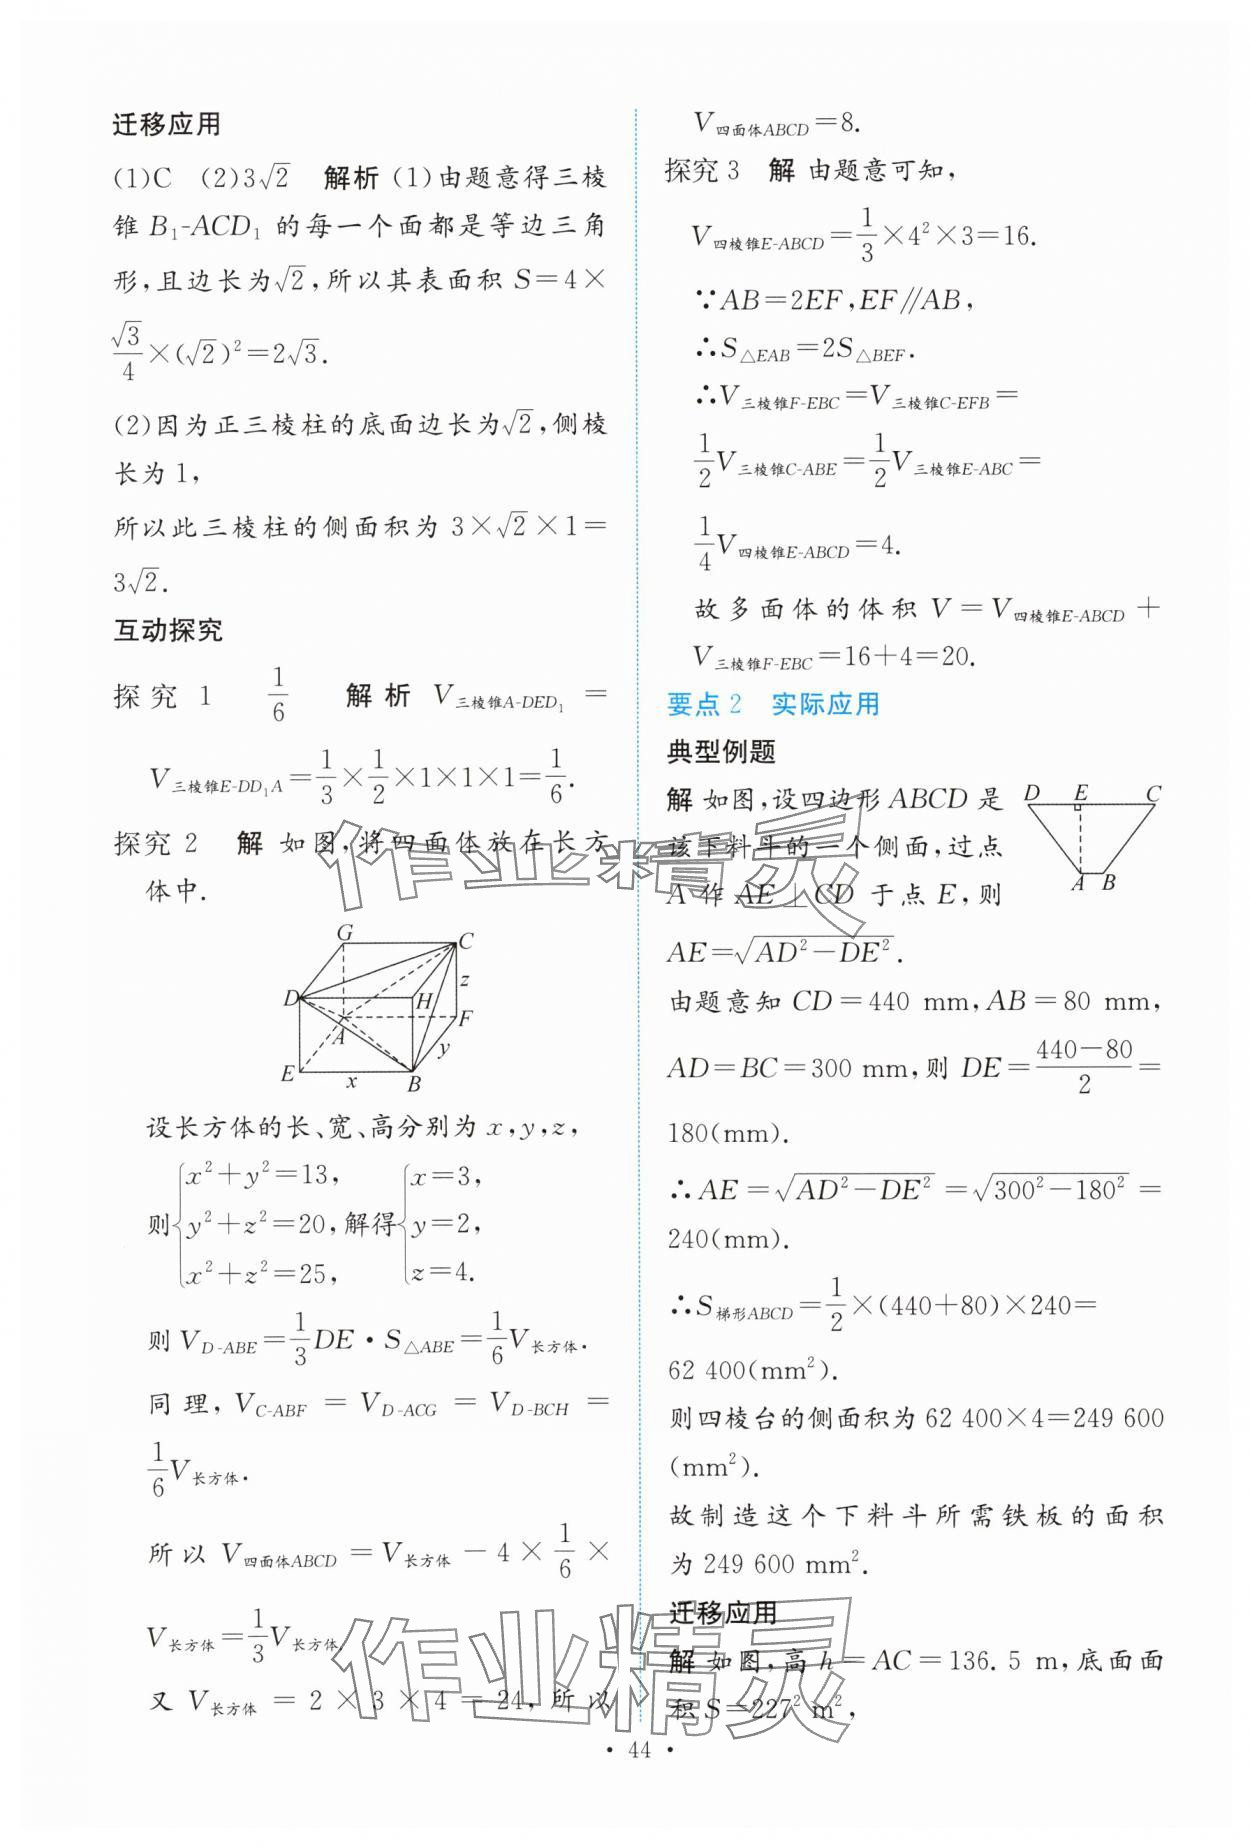 迁移应用
(1)C (2)3√2 解析 (1)由题意得三棱
锥 B₁-ACD₁ 的每一个面都是等边三角
形,且边长为√2,所以其表面积 S=4×
√3/4×(√2)²=2√3.
(2)因为正三棱柱的底面边长为√2,侧棱
长为 1,
所以此三棱柱的侧面积为 3×√2×1=
3√2.
互动探究
探究 1 1/6 解析 V三棱锥A-DED₁ =
V三棱锥E-DD₁A=1/3×1/2×1×1×1=1/6.
探究 2 解 如图,将四面体放在长方
体中.
G
C
z
D
H
A
F
y
E
x
B
设长方体的长、宽、高分别为 x,y,z,
则{x²+y²=13, y²+z²=20, x²+z²=25, 解得{x=3, y=2, z=4.
则 V D-ABE=1/3DE·S△ABE=1/6V长方体.
同理, V C-ABF = V D-ACG = V D-BCH =
1/6V长方体.
所以 V四面体ABCD = V长方体 - 4 × 1/6 ×
V长方体=1/3V长方体
又 V长方体 = 2 × 3 × 4 = 24, 所以
V四面体ABCD=8.
探究 3 解 由题意可知,
V四棱锥E-ABCD=1/3×4²×3=16.
∵AB=2EF,EF∥AB,
∴S△EAB=2S△BEF.
∴V三棱锥F-EBC=V三棱锥C-EFB=
1/2V三棱锥C-ABE=1/2V三棱锥E-ABC=
1/4V四棱锥E-ABCD=4.
故多面体的体积 V=V四棱锥E-ABCD+
V三棱锥F-EBC=16+4=20.
要点 2 实际应用
典型例题
解 如图,设四边形 ABCD 是
该下料斗的一个侧面,过点
A 作 AE⊥CD 于点 E,则
D E C
A B
AE=√(AD²-DE²).
由题意知 CD=440 mm,AB=80 mm,
AD=BC=300 mm,则 DE=(440-80)/2=
180(mm).
∴AE=√(AD²-DE²)=√(300²-180²)=
240(mm).
∴S梯形ABCD=1/2×(440+80)×240=
62 400(mm²).
则四棱台的侧面积为 62 400×4=249 600
(mm²).
故制造这个下料斗所需铁板的面积
为 249 600 mm².
迁移应用
解 如图,高 h=AC=136.5 m,底面面
积 S=227² m²,
· 44 ·
作业精灵
作业精灵